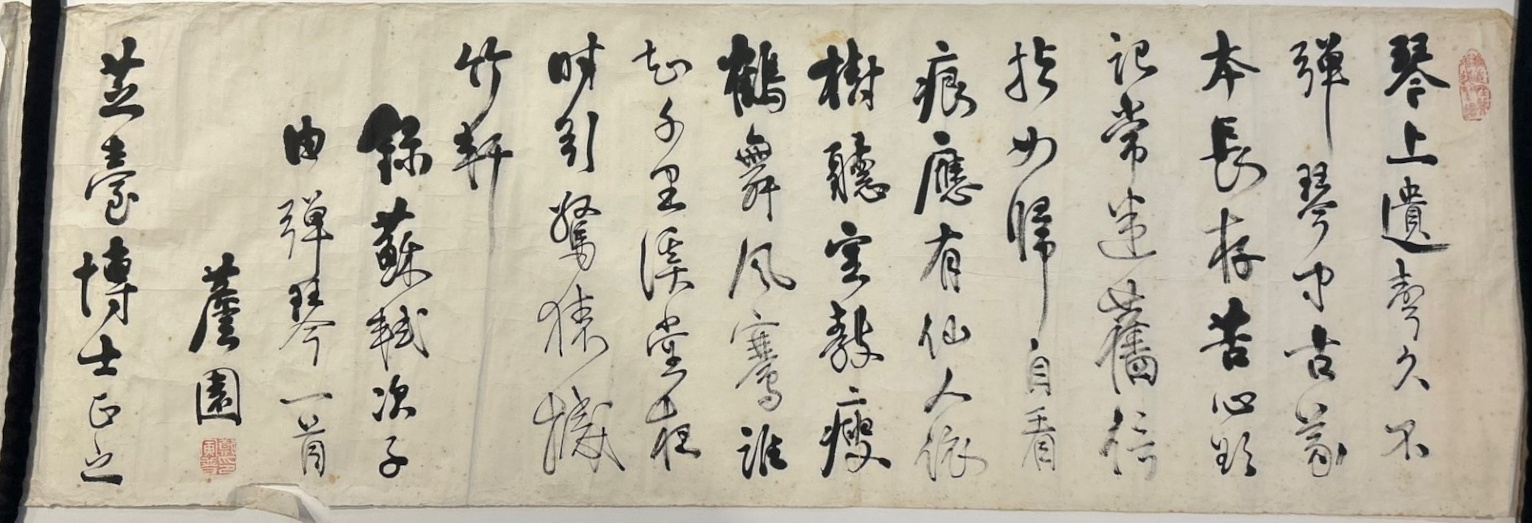 琴上遺聲久不
彈琴中古義
本長存苦心欲
記常迷舊信
指如歸自看
痕應有仙人依
樹聽空教瘦
鶴舞風騫誰
知千里溪堂夜
時引驚猿撼
竹軒
錄蘇軾次子
由彈琴一首
園
芝臺博士正之